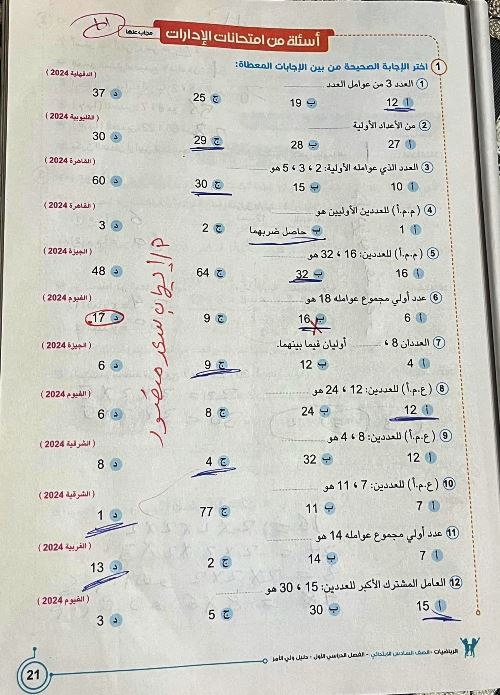 أسئلة من امتحانات الإدارات مجاب عنها
1 اختر الإجابة الصحيحة من بين الإجابات المعطاة:
1 العدد 3 من عوامل العدد ............ (الدقهلية 2024)
أ 12 ب 19 ج 25 د 37
2 من الأعداد الأولية ............ (القليوبية 2024)
أ 27 ب 28 ج 29 د 30
3 العدد الذي عوامله الأولية: 2 ، 3 ، 5 هو ............ (القاهرة 2024)
أ 10 ب 15 ج 30 د 60
4 (م.م.أ) للعددين الأوليين هو ............ (القاهرة 2024)
أ 1 ب حاصل ضربهما ج 2 د 3
5 (م.م.أ) للعددين: 16 ، 32 هو ............ (الجيزة 2024)
أ 16 ب 32 ج 64 د 48
6 عدد أولي مجموع عوامله 18 هو ............ (الفيوم 2024)
أ 6 ب 16 ج 9 د 17
7 العددان 8 ، ............ أوليان فيما بينهما. (الجيزة 2024)
أ 4 ب 12 ج 9 د 6
8 (ع.م.أ) للعددين: 12 ، 24 هو ............ (الفيوم 2024)
أ 12 ب 24 ج 8 د 6
9 (ع.م.أ) للعددين: 8 ، 4 هو ............ (الشرقية 2024)
أ 12 ب 32 ج 4 د 8
10 (ع.م.أ) للعددين: 7 ، 11 هو ............ (الشرقية 2024)
أ 7 ب 11 ج 77 د 1
11 عدد أولي مجموع عوامله 14 هو ............ (الغربية 2024)
أ 7 ب 14 ج 2 د 13
12 العامل المشترك الأكبر للعددين: 15 ، 30 هو ............ (الفيوم 2024)
أ 15 ب 30 ج 5 د 3
الرياضيات - الصف السادس الابتدائي - الفصل الدراسي الأول - دليل ولي الأمر
21